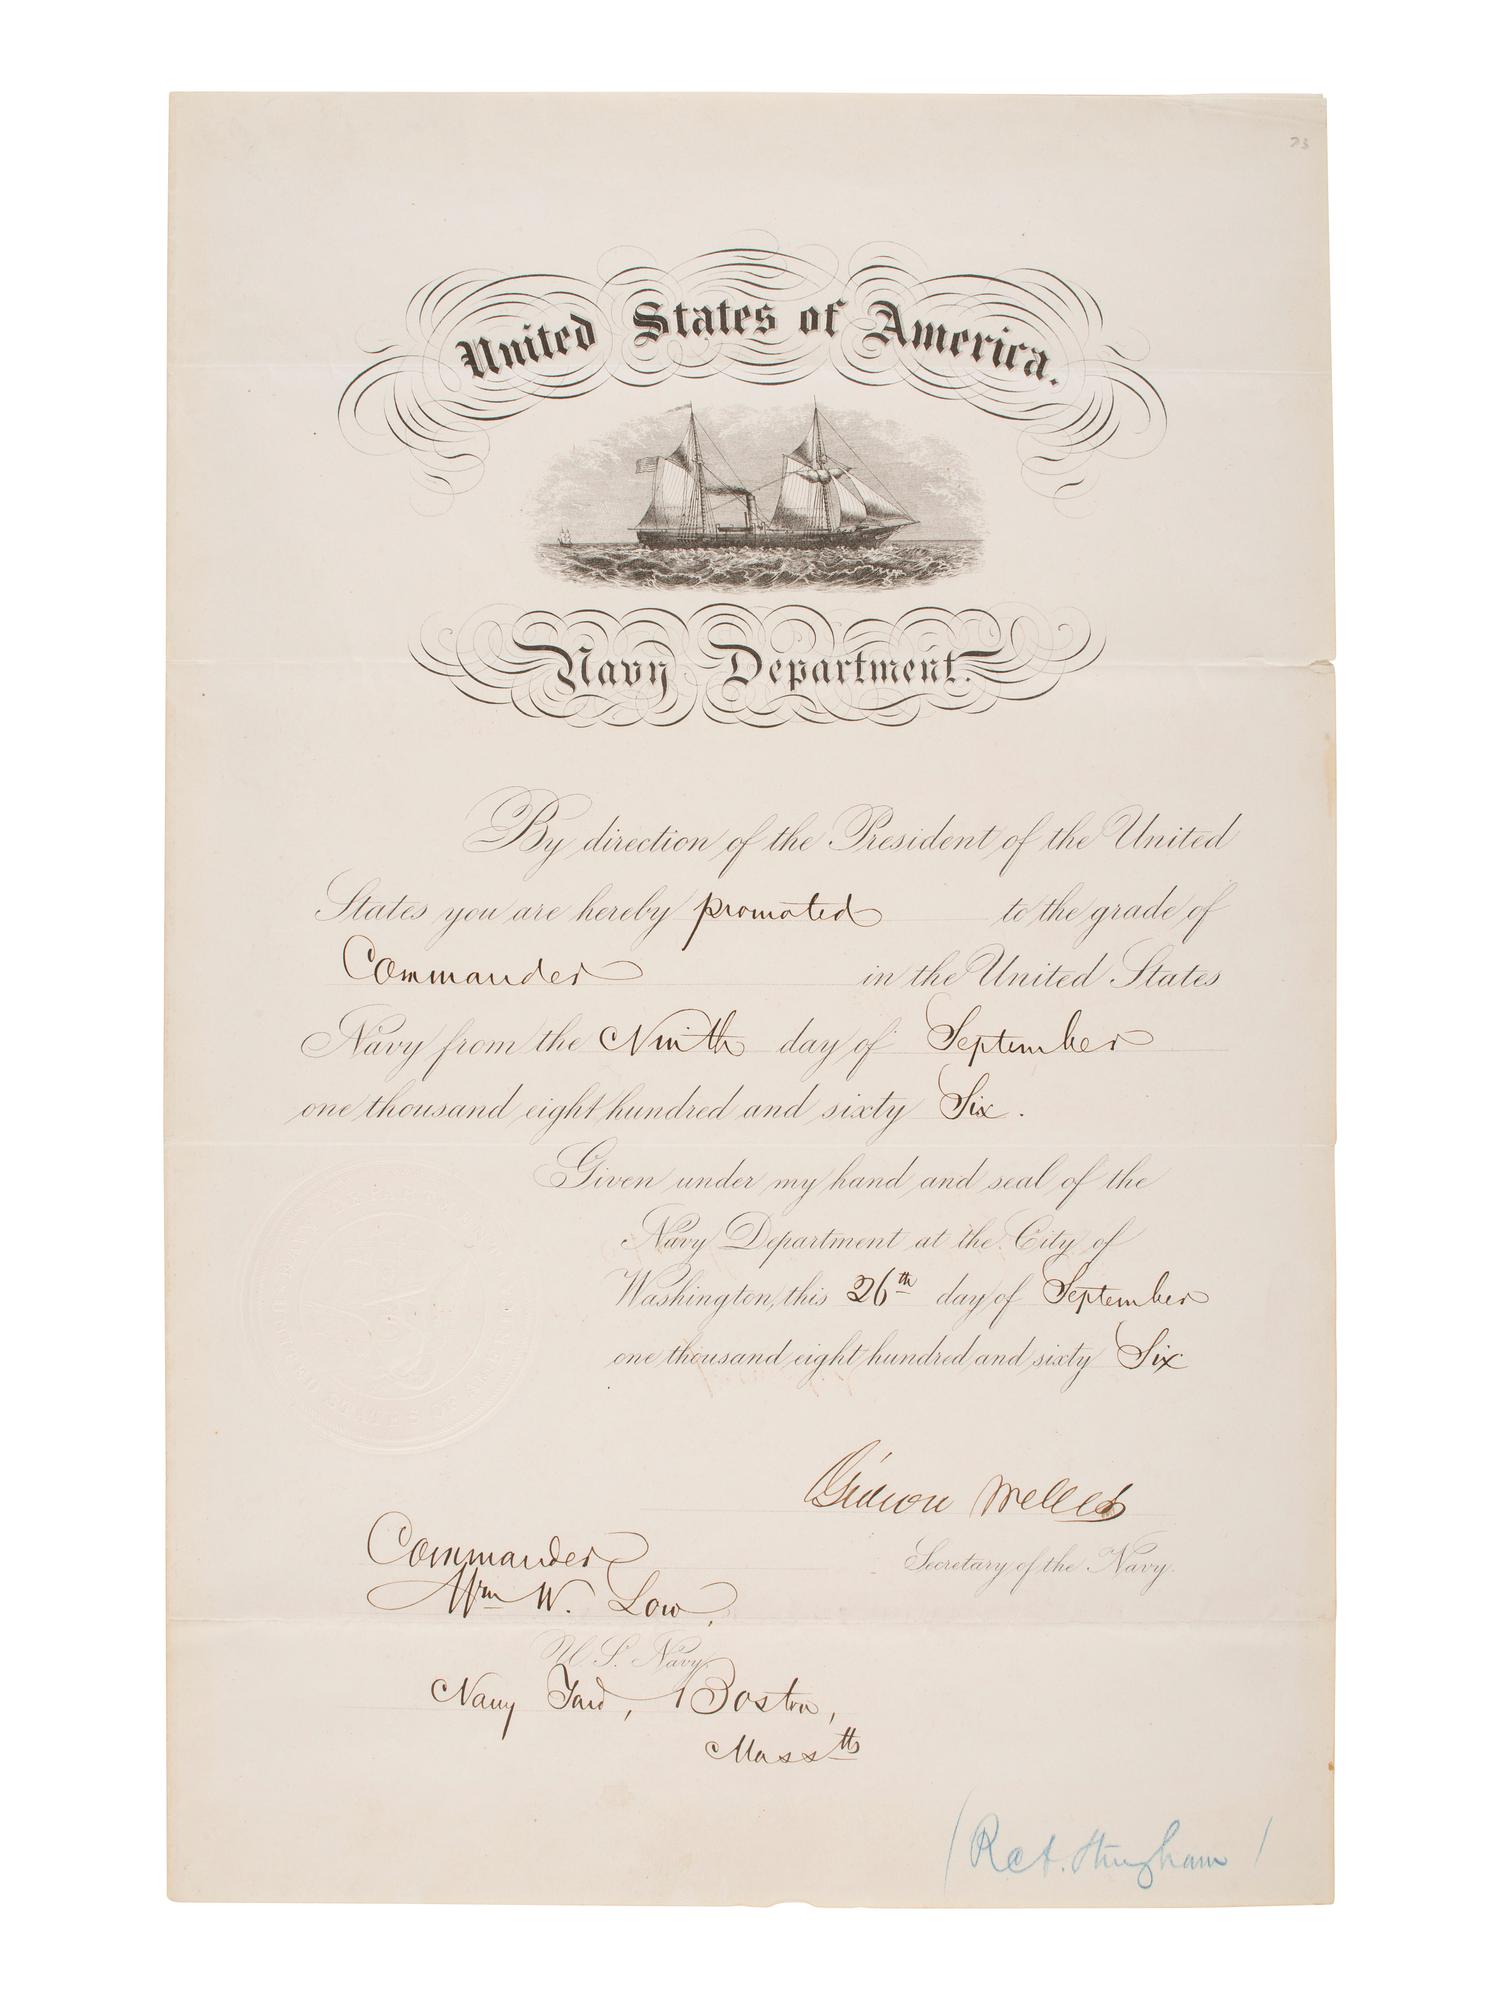 23
United States of America.
Navy Department.
By direction of the President of the United
States you are hereby promoted to the grade of
Commander in the United States
Navy from the Ninth day of September
one thousand eight hundred and sixty Six.
Given under my hand and seal of the
Navy Department at the City of
Washington, this 26th day of September
one thousand eight hundred and sixty Six
Gideon Welles
Secretary of the Navy.
Commander
Wm W. Low,
U.S. Navy.
Navy Yard, Boston,
Massts